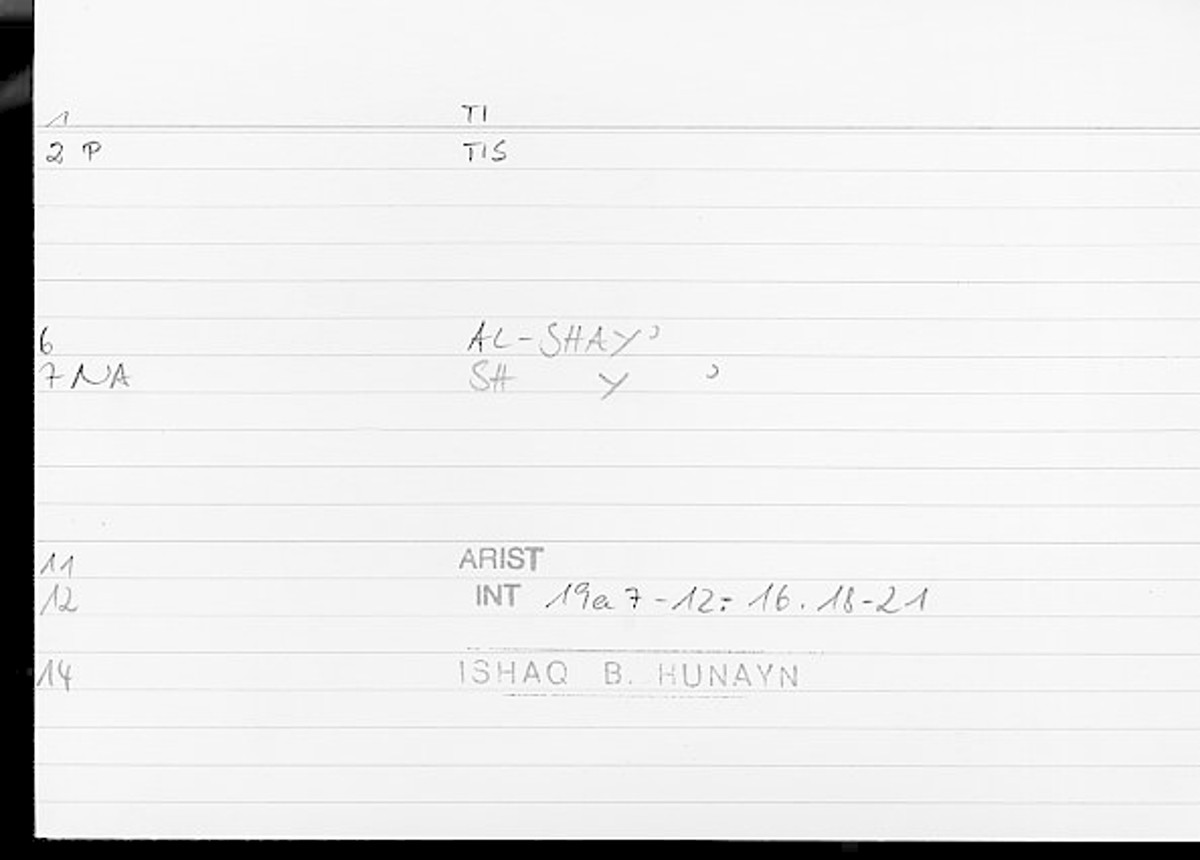 1 TI
2 P TIS
6 AL-SHAY'
7 NA SH Y '
11 ARIST
12 INT 19a 7-12; 16. 18-21
14 ISHAQ B. HUNAYN